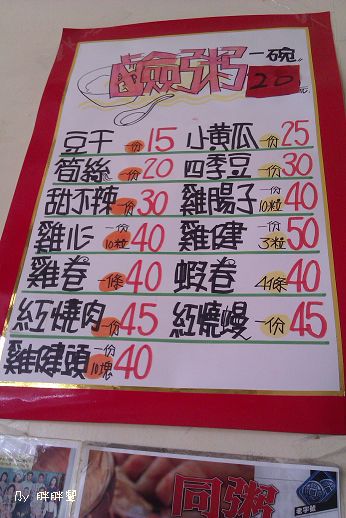 鹹粥一碗20元
豆干一份15 小黄瓜一份25
筍絲一份20 四季豆一份30
甜不辣一份30 雞腸子一份10粒40
雞心一份10粒40 雞健一份3粒50
雞卷一條40 蝦卷4條40
紅燒肉一份45 紅燒鰻一份45
雞健頭一份10塊40
同粥
老字號
By 胖胖